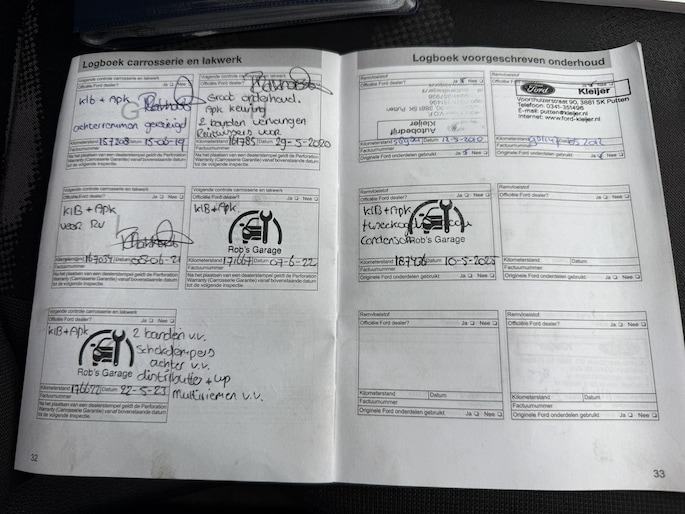 Logboek carrosserie en lakwerk
Volgende controle carrosserie en lakwerk
Officiële Ford dealer? Ja Nee
KlB + Apk
achterremmen gereinigd
Kilometerstand 157208 Datum 15-06-19
Factuurnummer
Na het plaatsen van een dealerstempel geldt de Perforation
Warranty (Carrosserie Garantie) vanaf bovenstaande datum
tot de volgende inspectie.
Officiële Ford dealer?
Groot onderhoud.
Apk keuring
2 banden vervangen
Ruitwissers voor
Kilometerstand 161785 Datum 29-5-2020
Factuurnummer
Na het plaatsen van een dealerstempel geldt de Perforation
Warranty (Carrosserie Garantie) vanaf bovenstaande datum
tot de volgende inspectie.
Volgende controle carrosserie en lakwerk
Officiële Ford dealer? Ja Nee
KlB + Apk
veer RV
Kilometerstand 167039 Datum 05-06-21
Factuurnummer
Na het plaatsen van een dealerstempel geldt de Perforation
Warranty (Carrosserie Garantie) vanaf bovenstaande datum
tot de volgende inspectie.
Volgende controle carrosserie en lakwerk
Officiële Ford dealer? Ja Nee
KlB + Apk
Rob's Garage
Kilometerstand 171667 Datum 07-6-22
Factuurnummer
Na het plaatsen van een dealerstempel geldt de Perforation
Warranty (Carrosserie Garantie) vanaf bovenstaande datum
tot de volgende inspectie.
Volgende controle carrosserie en lakwerk
Officiële Ford dealer? Ja Nee
KlB + Apk
2 banden v.v.
achter v.v.
Rob's Garage
distributie + wp
Kilometerstand 176677 Datum 22-5-23
multiriemen v.v.
Factuurnummer
Na het plaatsen van een dealerstempel geldt de Perforation
Warranty (Carrosserie Garantie) vanaf bovenstaande datum
tot de volgende inspectie.
32
Logboek voorgeschreven onderhoud
Remvloeistof
Officiële Ford dealer? Ja Nee
Autobedrijf
Kleijer
Kilometerstand Datum 12-5-2010
Factuurnummer
Originele Ford onderdelen gebruikt Ja Nee
Ford Kleijer
Voorthuizerstraat 90, 3881 SK Putten
Telefoon: 0341-351496
E-mail: putten@kleijer.nl
Internet: www.ford-kleijer.nl
Kilometerstand
Factuurnummer
Originele Ford onderdelen gebruikt Ja Nee
Remvloeistof
Officiële Ford dealer? Ja Nee
KlB + Apk
Condensor
Rob's Garage
Kilometerstand 187426 Datum 10-5-2025
Factuurnummer
Originele Ford onderdelen gebruikt Ja Nee
Remvloeistof
Officiële Ford dealer? Ja Nee
Kilometerstand Datum
Factuurnummer
Originele Ford onderdelen gebruikt Ja Nee
Remvloeistof
Officiële Ford dealer? Ja Nee
Kilometerstand Datum
Factuurnummer
Originele Ford onderdelen gebruikt Ja Nee
Remvloeistof
Officiële Ford dealer? Ja Nee
Kilometerstand Datum
Factuurnummer
Originele Ford onderdelen gebruikt Ja Nee
33